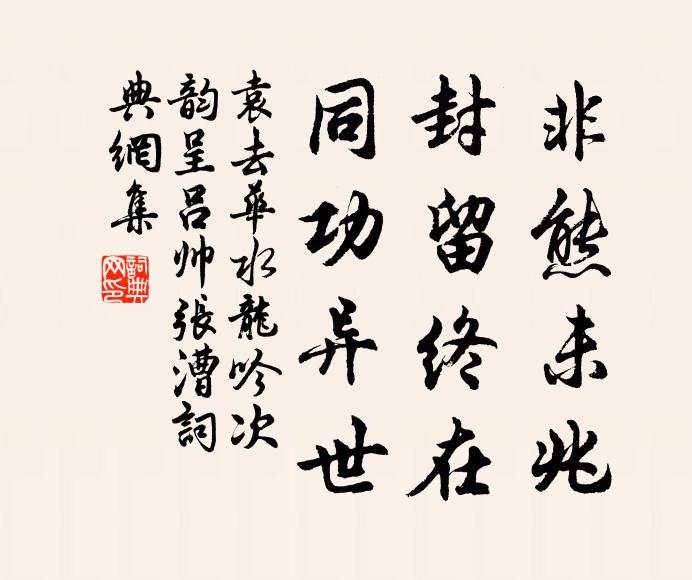 非熊未兆
封留终在
同功异世
袁去华水龍吟次
韵呈吕帅張漕詞
典網集
詞典網印